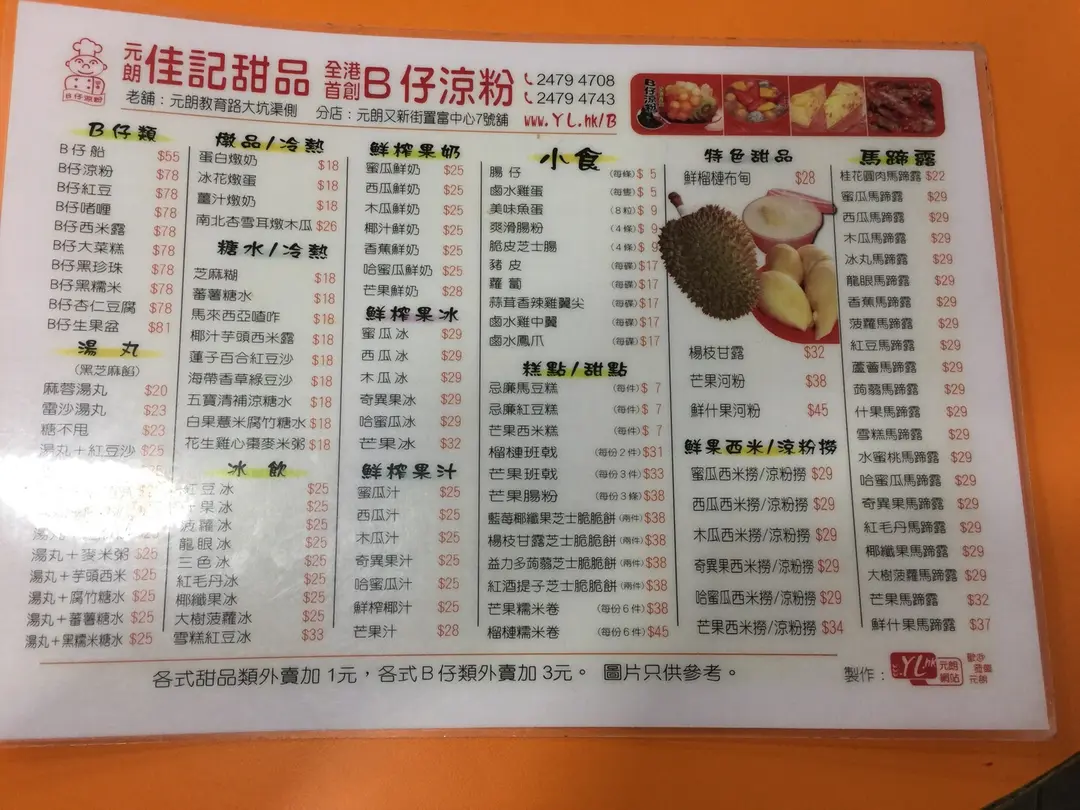 元朗 佳記甜品 全港首創 B仔涼粉 2479 4708
2479 4743
老舖：元朗教育路大坑渠側 分店：元朗又新街置富中心7號舖 www.YL.hk/B
B仔涼粉
B仔類
B仔船 $55
B仔涼粉 $78
B仔紅豆 $78
B仔啫喱 $78
B仔西米露 $78
B仔大菜糕 $78
B仔黑珍珠 $78
B仔黑糯米 $78
B仔杏仁豆腐 $78
B仔生果盆 $81
湯丸
(黑芝麻餡)
麻蓉湯丸 $20
雷沙湯丸 $23
糖不甩 $23
湯丸＋紅豆沙 $25
湯丸＋麥米粥 $25
湯丸＋芋頭西米 $25
湯丸＋腐竹糖水 $25
湯丸＋蕃薯糖水 $25
湯丸＋黑糯米糖水 $25
燉品/冷熱
蛋白燉奶 $18
冰花燉蛋 $18
薑汁燉奶 $18
南北杏雪耳燉木瓜 $26
糖水/冷熱
芝麻糊 $18
蕃薯糖水 $18
馬來西亞喳咋 $18
椰汁芋頭西米露 $18
蓮子百合紅豆沙 $18
海帶香草綠豆沙 $18
五寶清補涼糖水 $18
白果薏米腐竹糖水 $18
花生雞心棗麥米粥 $18
冰飲
紅豆冰 $25
什果冰 $25
菠蘿冰 $25
龍眼冰 $25
三色冰 $25
紅毛丹冰 $25
椰纖果冰 $25
大樹菠蘿冰 $25
雪糕紅豆冰 $33
鮮榨果奶
蜜瓜鮮奶 $25
西瓜鮮奶 $25
木瓜鮮奶 $25
椰汁鮮奶 $25
香蕉鮮奶 $25
哈蜜瓜鮮奶 $25
芒果鮮奶 $28
鮮榨果冰
蜜瓜冰 $29
西瓜冰 $29
木瓜冰 $29
奇異果冰 $29
哈蜜瓜冰 $29
芒果冰 $32
鮮榨果汁
蜜瓜汁 $25
西瓜汁 $25
木瓜汁 $25
奇異果汁 $25
哈蜜瓜汁 $25
鮮榨椰汁 $25
芒果汁 $28
小食
腸仔 (每條) $ 5
鹵水雞蛋 (每隻) $ 5
美味魚蛋 (8粒) $ 9
爽滑腸粉 (4條) $ 9
脆皮芝士腸 (4條) $ 9
豬皮 (每碟) $17
蘿蔔 (每碟) $17
蒜茸香辣雞翼尖 (每碟) $17
鹵水雞中翼 (每碟) $17
鹵水鳳爪 (每碟) $17
糕點/甜點
忌廉馬豆糕 (每件) $ 7
忌廉紅豆糕 (每件) $ 7
芒果西米糕 (每件) $ 7
榴槤班戟 (每份2件) $31
芒果班戟 (每份3件) $33
芒果腸粉 (每份3條) $38
藍莓椰纖果芝士脆脆餅 (兩件) $38
楊枝甘露芝士脆脆餅 (兩件) $38
益力多蒟蒻芝士脆脆餅 (兩件) $38
紅酒提子芝士脆脆餅 (兩件) $38
芒果糯米卷 (每份6件) $38
榴槤糯米卷 (每份6件) $45
特色甜品
鮮榴槤布甸 $28
楊枝甘露 $32
芒果河粉 $38
鮮什果河粉 $45
鮮果西米/涼粉撈
蜜瓜西米撈/涼粉撈 $29
西瓜西米撈/涼粉撈 $29
木瓜西米撈/涼粉撈 $29
奇異果西米撈/涼粉撈 $29
哈蜜瓜西米撈/涼粉撈 $29
芒果西米撈/涼粉撈 $34
馬蹄露
桂花圓肉馬蹄露 $22
蜜瓜馬蹄露 $29
西瓜馬蹄露 $29
木瓜馬蹄露 $29
冰丸馬蹄露 $29
龍眼馬蹄露 $29
香蕉馬蹄露 $29
菠蘿馬蹄露 $29
紅豆馬蹄露 $29
蘆薈馬蹄露 $29
蒟蒻馬蹄露 $29
什果馬蹄露 $29
雪糕馬蹄露 $29
水蜜桃馬蹄露 $29
哈蜜瓜馬蹄露 $29
奇異果馬蹄露 $29
紅毛丹馬蹄露 $29
椰纖果馬蹄露 $29
大樹菠蘿馬蹄露 $29
芒果馬蹄露 $32
鮮什果馬蹄露 $37
各式甜品類外賣加 1元，各式B仔類外賣加 3元。 圖片只供參考。
製作： YL.hk 元朗網站